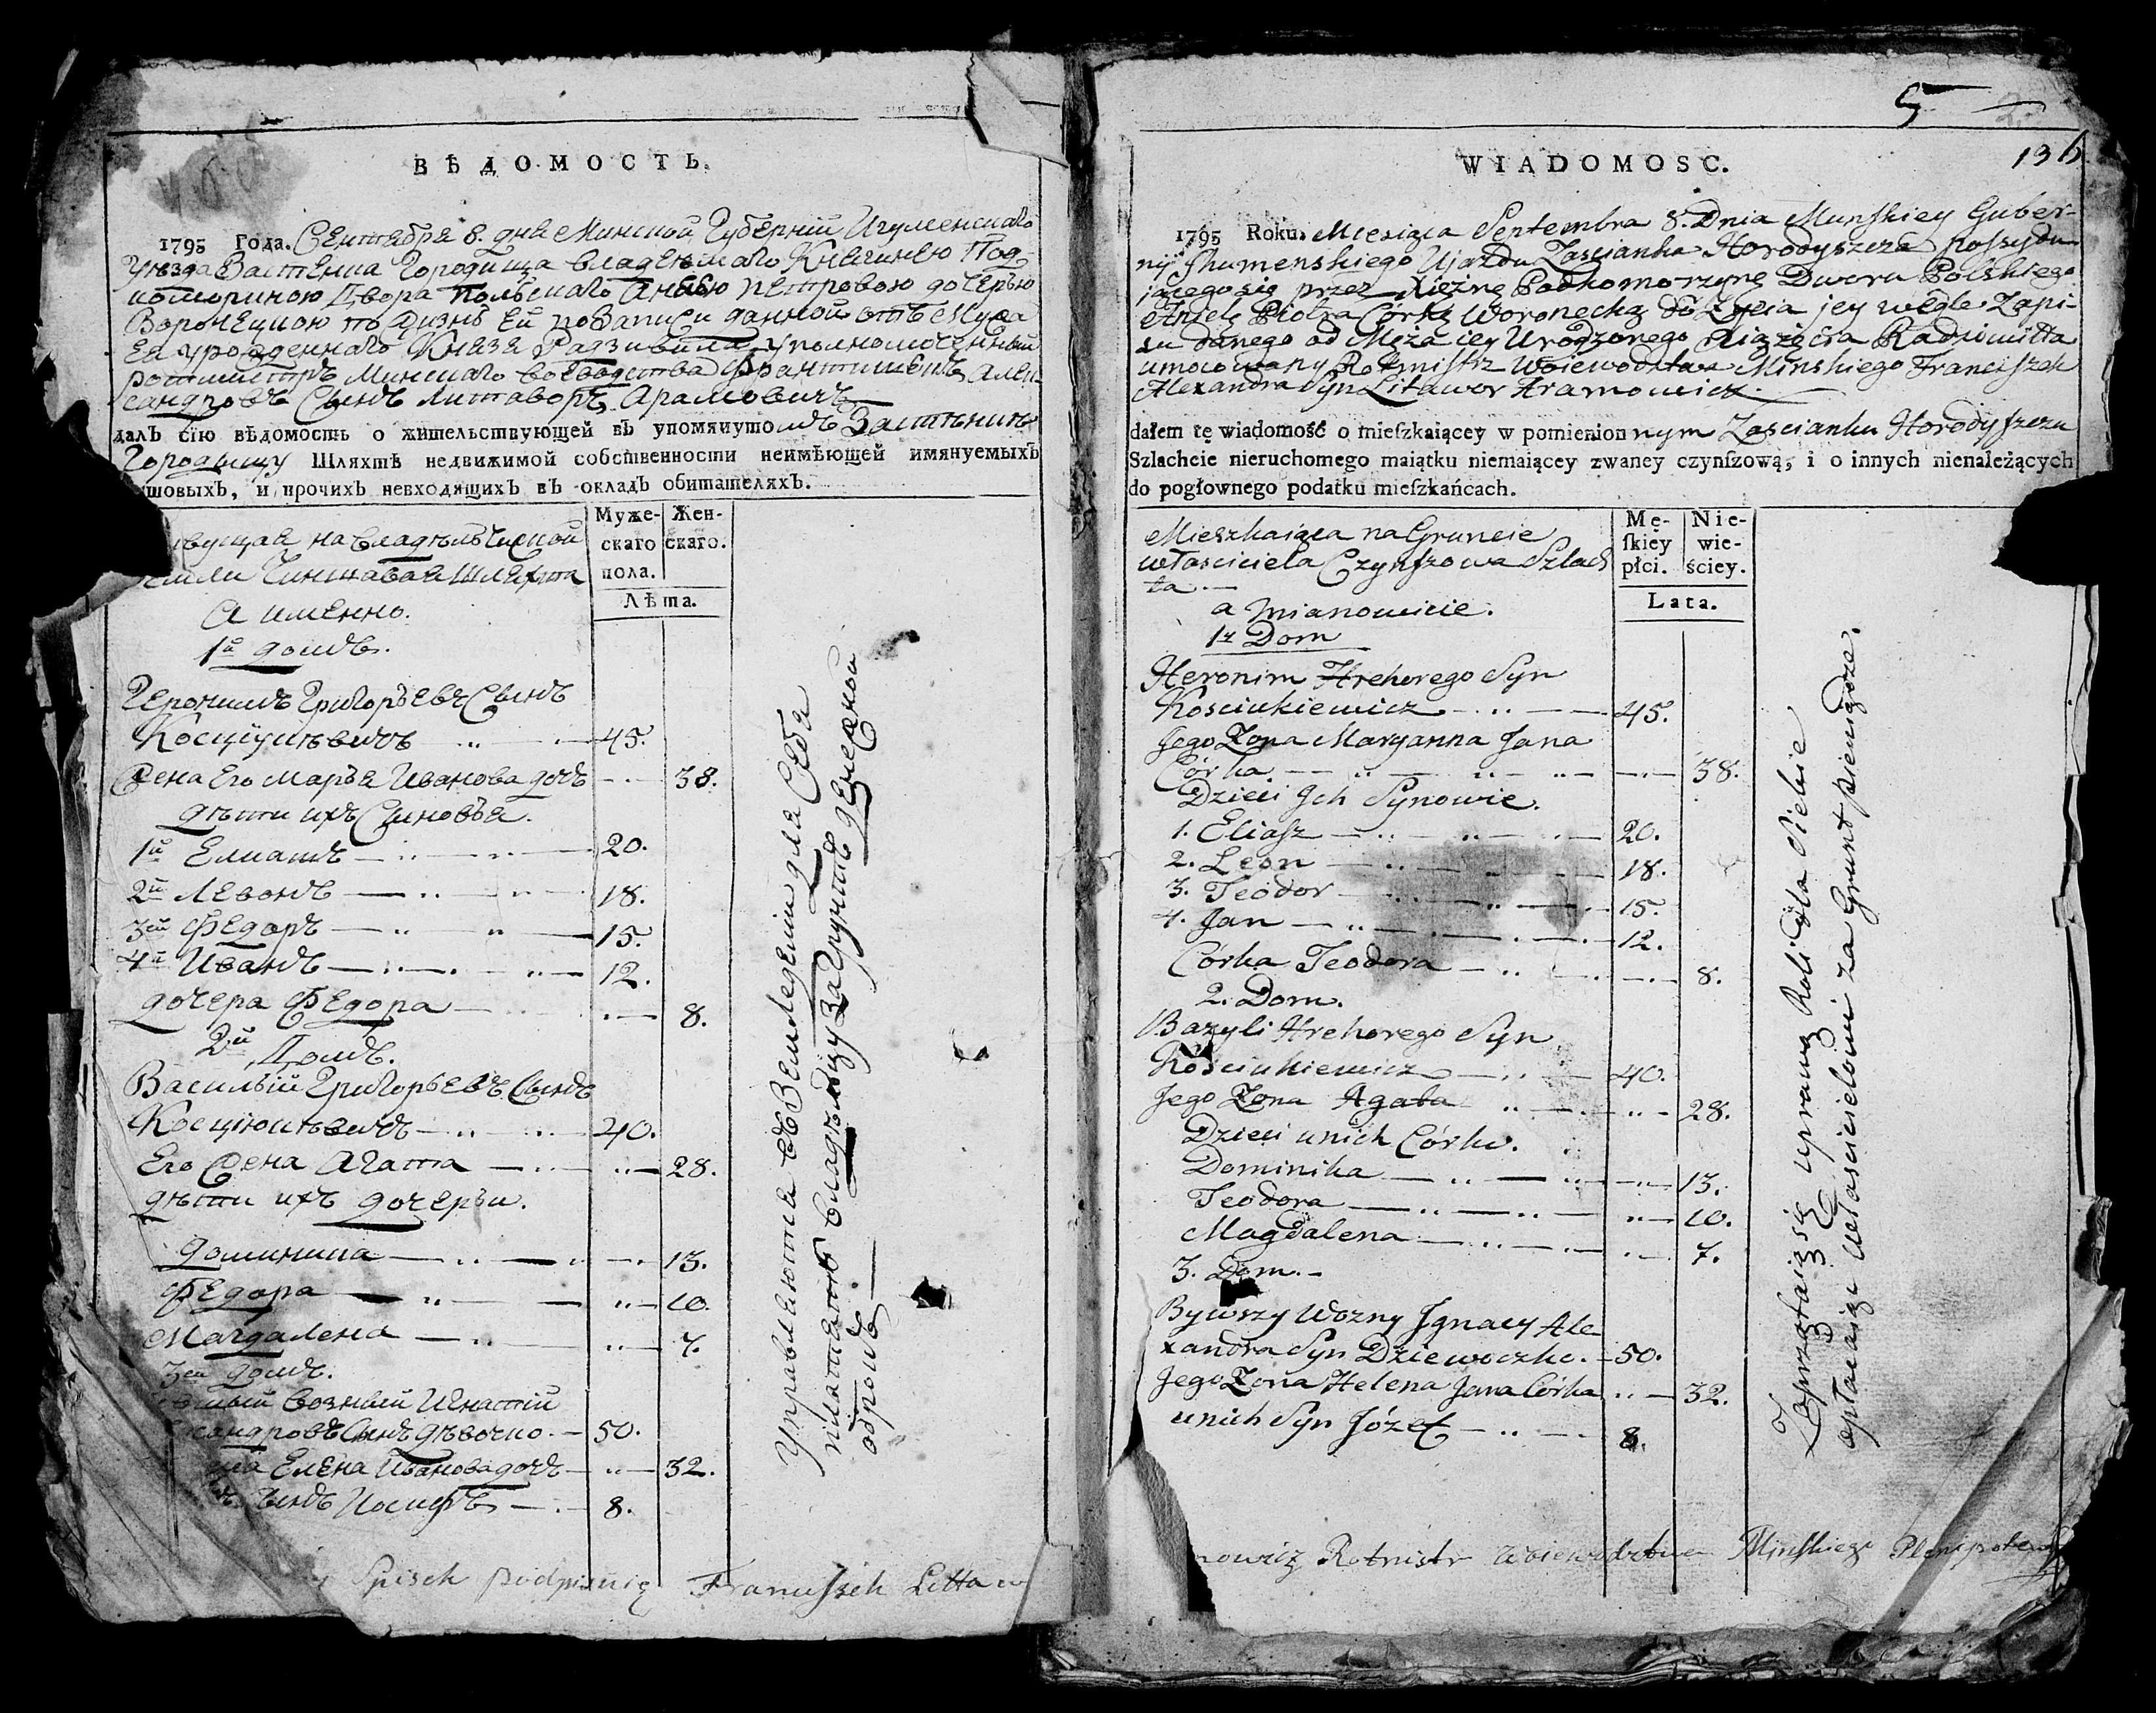 ВѢДОМОСТЬ.
1795 Года. Сентября 8. дня Минской Губернiи Игуменскаго
Уѣзда Застенка Городища владѣемаго Княгинею Под-
комориною Двора Польскаго Петровою дочерью
Воронецкою по жизнь ей по записи данной отъ Мужа
Ея урожденнаго Князя Радзивила уполномоченный
ротмистръ Минскаго воеводства Францишекъ Алек-
сандровъ Сынъ Литаворъ Арамовичъ
далъ сiю вѣдомость о жительствующей въ упомянутомъ Застѣнкѣ
Городищу Шляхтѣ недвижимой собственности неимѣющей имянуемыхъ
шовыхъ, и прочихъ невходящихъ въ окладъ обитателяхъ.
Муже- Жен-
скаго скаго.
пола.
Лѣта.
вущая на владѣльческой
земли Чиншавая шляхта
А именно.
1й домъ.
Геронимъ Григорьевъ Сынъ
Косцiушкевичъ 45.
Жена Его Марья Иванова дочь 38.
дѣти ихъ Сыновья.
1й Елиашъ 20.
2й Левонъ 18.
3й Федоръ 15.
4й Иванъ 12.
дочера Федора 8.
2й Домъ.
Василiй Григорьевъ Сынъ
Косцiюшкевичъ 40.
Его Жена Агата 28.
дѣти ихъ дочерьи.
Доминика 13.
Федора 10.
Магдалена 7.
3й домъ.
возный Игнатiй
сандровъ Сынъ Дѣвочко. 50.
Елена Иванова дочь 32.
Iосифъ 8.
Управляются въ Земледелiи для Себя
платятъ владѣльцу за Грунтъ денежной
оброкъ
Spisek podpisuię Franciszek Littaw
5
136
WIADOMOSC.
1795 Roku. Miesiąca Septembra 8. Dnia Munskiey Guber-
nij Ihumenskiego Ujazdu Zascianka Horodyszcza possydu-
jącego się przez Xiężnę Podkomorzynę Dworu Polskiego
Anielę Piotra Córkę Woronecką do Życia jey wegle Zapi-
su danego od Męża jey Urodzonego Xiążęcia Radziwiłła
umocowany Rotmistrz Woiewodstwa Minskiego Franciszek
Alexandra Syn Litawor Aramowicz
dałem tę wiadomość o mieſzkaiącey w pomienionnym Zascianku Horodyszczu
Szlachcie nieruchomego maiątku niemaiącey zwaney czynſzową, i o innych nienależących
do pogłownego podatku mieſzkańcach.
Mę- Nie-
ſkiey wie-
płci. ściey.
Lata.
Mieszkaiąca na Gruncie
własciciela Czynszowa Szlach
ta.
a Mianowicie.
1y Dom
Heronim Hrehorego Syn
Kosciukiewicz 45.
Jego Żona Maryanna Jana
Córka 38.
Dzieci Ich Synowie.
1. Eliasz 20.
2. Leon 18.
3. Teodor 15.
4. Jan 12.
Córka Teodora 8.
2. Dom.
Bazyli Hrehorego Syn
Kosciukiewicz 40.
Jego Żona Agata 28.
Dzieci unich Córki.
Dominika 13.
Teodora 10.
Magdalena 7.
3. Dom.
Bywszy Wozny Ignacy Ale-
xandra Syn Dziewoczko. 50.
Jego Żona Helena Jana Córka 32.
unich Syn Józef 8.
Zaprzątaią się uprawą Roli dla Siebie
opłacaiąc własicielowi za Grunt pieniądze.
mowicz Rotmistr Woiewodztwa Mińskiego Plenipotent